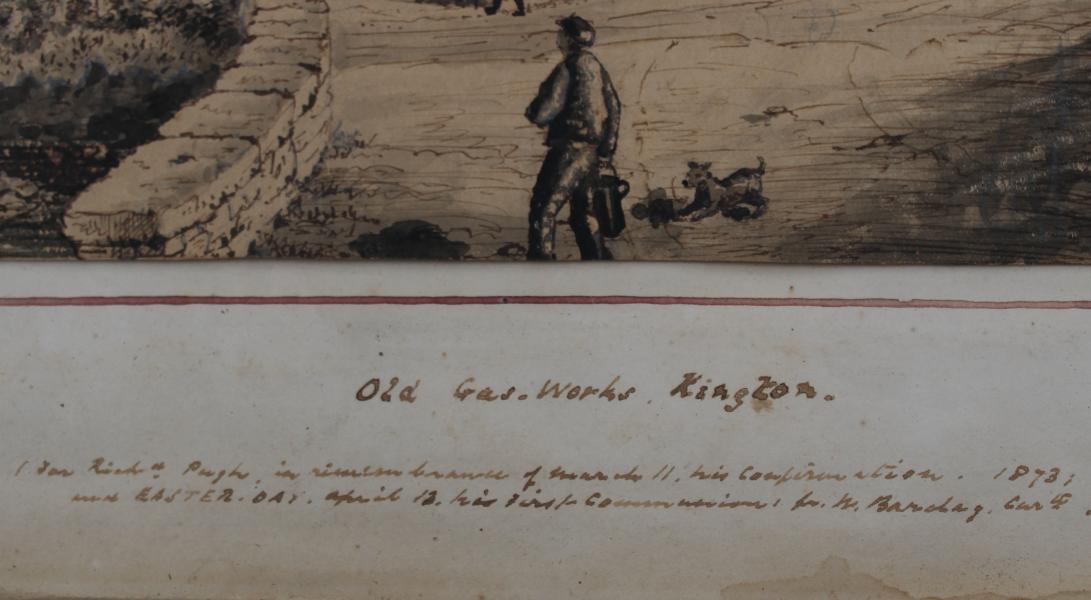 Old Gas-Works, Kington.
( For Rich.d Pugh, in remembrance of March 11, his Confirmation. 1873;
and EASTER-DAY. April 13. his First Communion: fr. H. Barclay, Cur